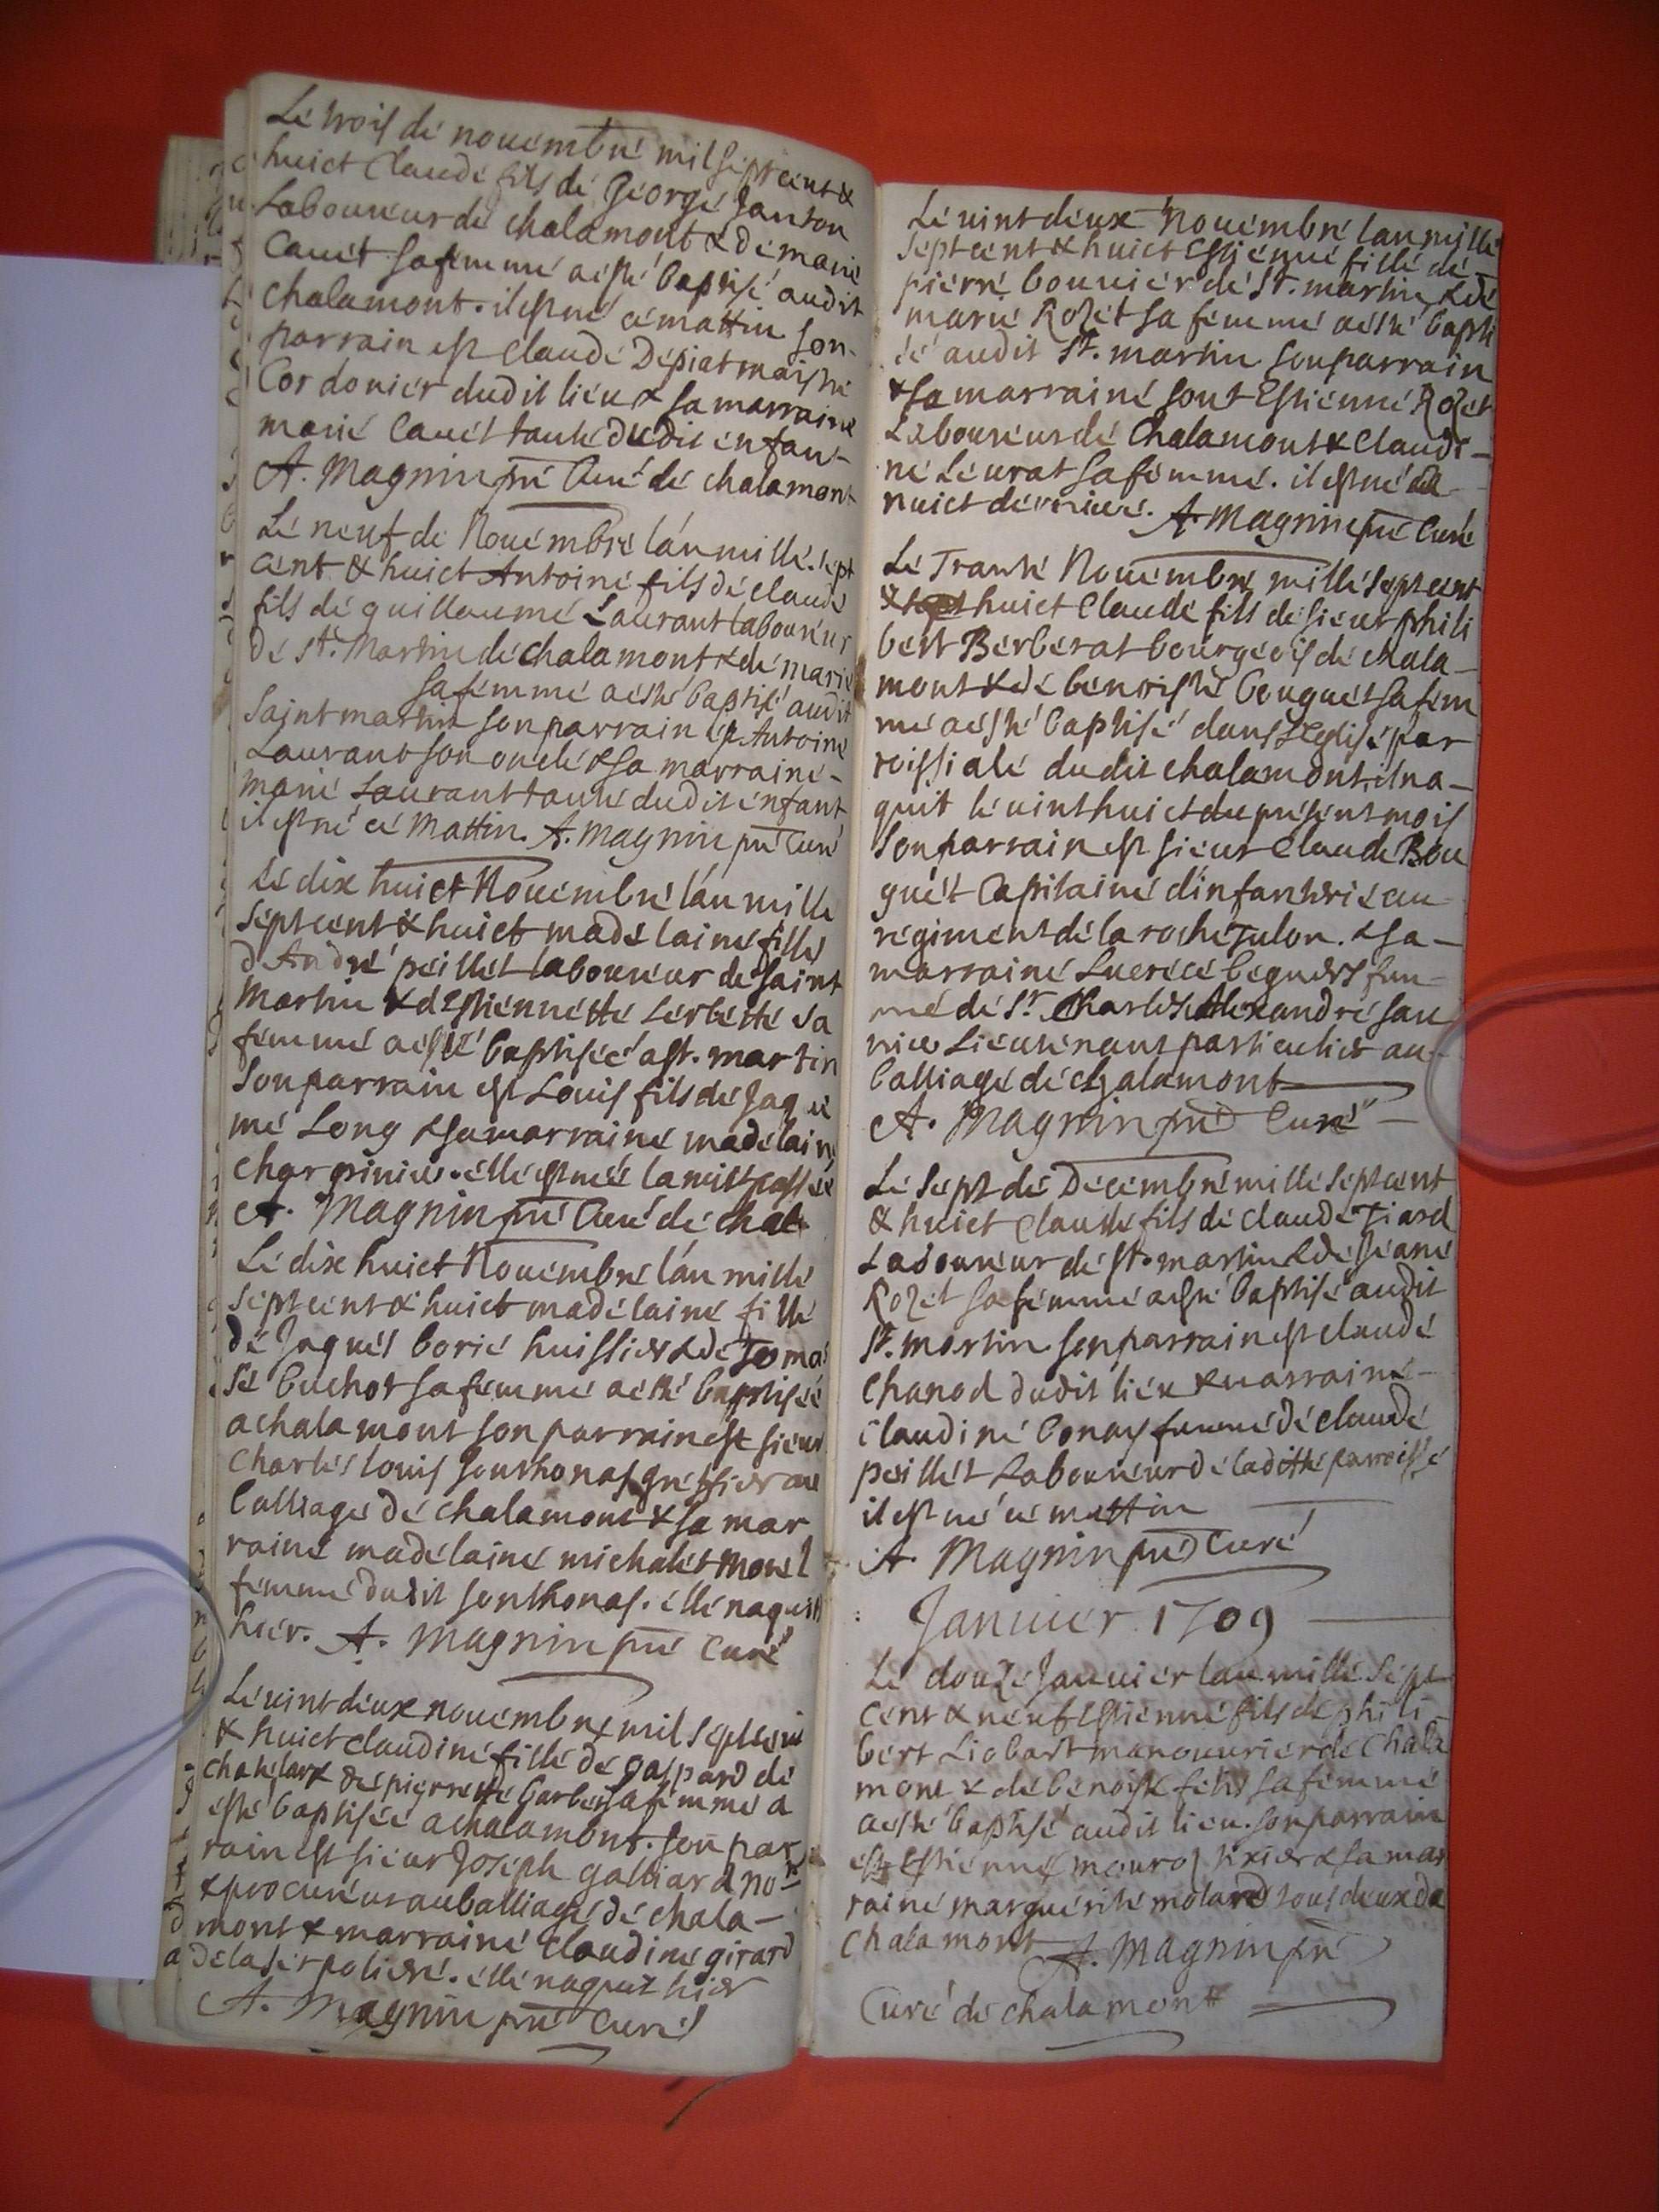 Le trois de nouembre mil sept cent &
huict Claude fils de George Janton
Laboureur de chalamont & de marie
Cauet sa femme a esté baptisé audit
chalamont. il est né ce mattin son
parrain est Claude Depiat maistre
Cordonier dudit lieu & sa marraine
marie Cauet tante dudit enfant
A. Magnin pre Curé de chalamont
Le neuf de Nouembre lan mille sept
cent & huict Antoine fils de claude
fils de guillaume Laurant laboureur
de St. Martin de chalamont & de marie
sa femme a esté baptisé audit
Saint martin son parrain est Antoine
Laurant son oncle & sa marraine
marie Laurant tante dudit enfant
il est né ce Mattin. A. Magnin pre Curé
Le dix huict Nouembre lan mille
sept cent & huict madelaine fille
d'André peillet laboureur de Saint
Martin & d'Estiennette Lerbette sa
femme a esté baptisée a st. martin
Son parrain est Louis fils de Jaque
me Long & sa marraine madelaine
charpinier. elle est née la nuit passée
A. Magnin pre Curé de chal
Le dix huict Nouembre lan mille
sept cent & huict madelaine fille
de Jaques borie huissier & de Toma
se buchot sa femme a esté baptisée
a chalamont son parrain est sieur
Charles louis Sonthonas greffier au
balliage de chalamont & sa mar
raine madelaine michalet morel
femme dudit sonthonas. elle naquit
hier. A. Magnin pre Curé
Le uint deux nouembre mil sept cent
& huict claudine fille de gaspard de
chatelard & de pierrette Garbe sa femme a
esté baptisée a chalamont. son par
rain est sieur Joseph galliard nore
& procureur au balliage de chala-
mont & marraine Claudine girard
de la serpoliere. elle naquit hier
A. Magnin pre Curé
Le uint deux Nouembre lan mille
sept cent & huict Estienne fille de
pierre bouuier de St. martin & de
marie Rozet sa femme a esté bapti
sé audit St. martin son parrain
& sa marraine sont Estienne Rozet
Laboureur de Chalamont & Claudi-
ne Leurat sa femme. il est né la
nuict derniere. A. Magnin pre Curé
Le Trante Nouembre mille sept cent
& huict Claude fils de sieur phili
bert Berberat bourgeois de chala-
mont & de benoiste bouguet sa fem
me a esté baptisé dans L'Eglise par
roissiale dudit chalamont, il na-
quit le uint huict du present mois
son parrain est sieur Claude Bou
guet Capitaine d'infanterie au
regiment de la roche Tulon. & sa-
marraine Lucrece beguet fem
me de Sr. Charles Alexandre san
nier Lieutenant particulier au
balliage de chalamont
A. Magnin pre Curé
Le sept de Decembre mille sept cent
& huict Claude fils de claude Tiard
Laboureur de st. martin & de Jeane
Rozet sa femme a esté baptisé audit
St. martin son parrain est claude
Chanod dudit lieu & marraine
Claudine bonas femme de claude
peillet Laboureur de laditte parroisse
il est né ce mattin
A. Magnin pre Curé
Januier 1709
Le douze Januier lan mille sept
cent & neuf Estienne fils de phili-
bert Liobart manouurier de Chala
mont & de benoiste fetit sa femme
a esté baptisé audit lieu. son parrain
est Estienne mouroz tixier & sa mar
raine marguerite molard tous deux de
chalamont A. Magnin pre
Curé de chalamont